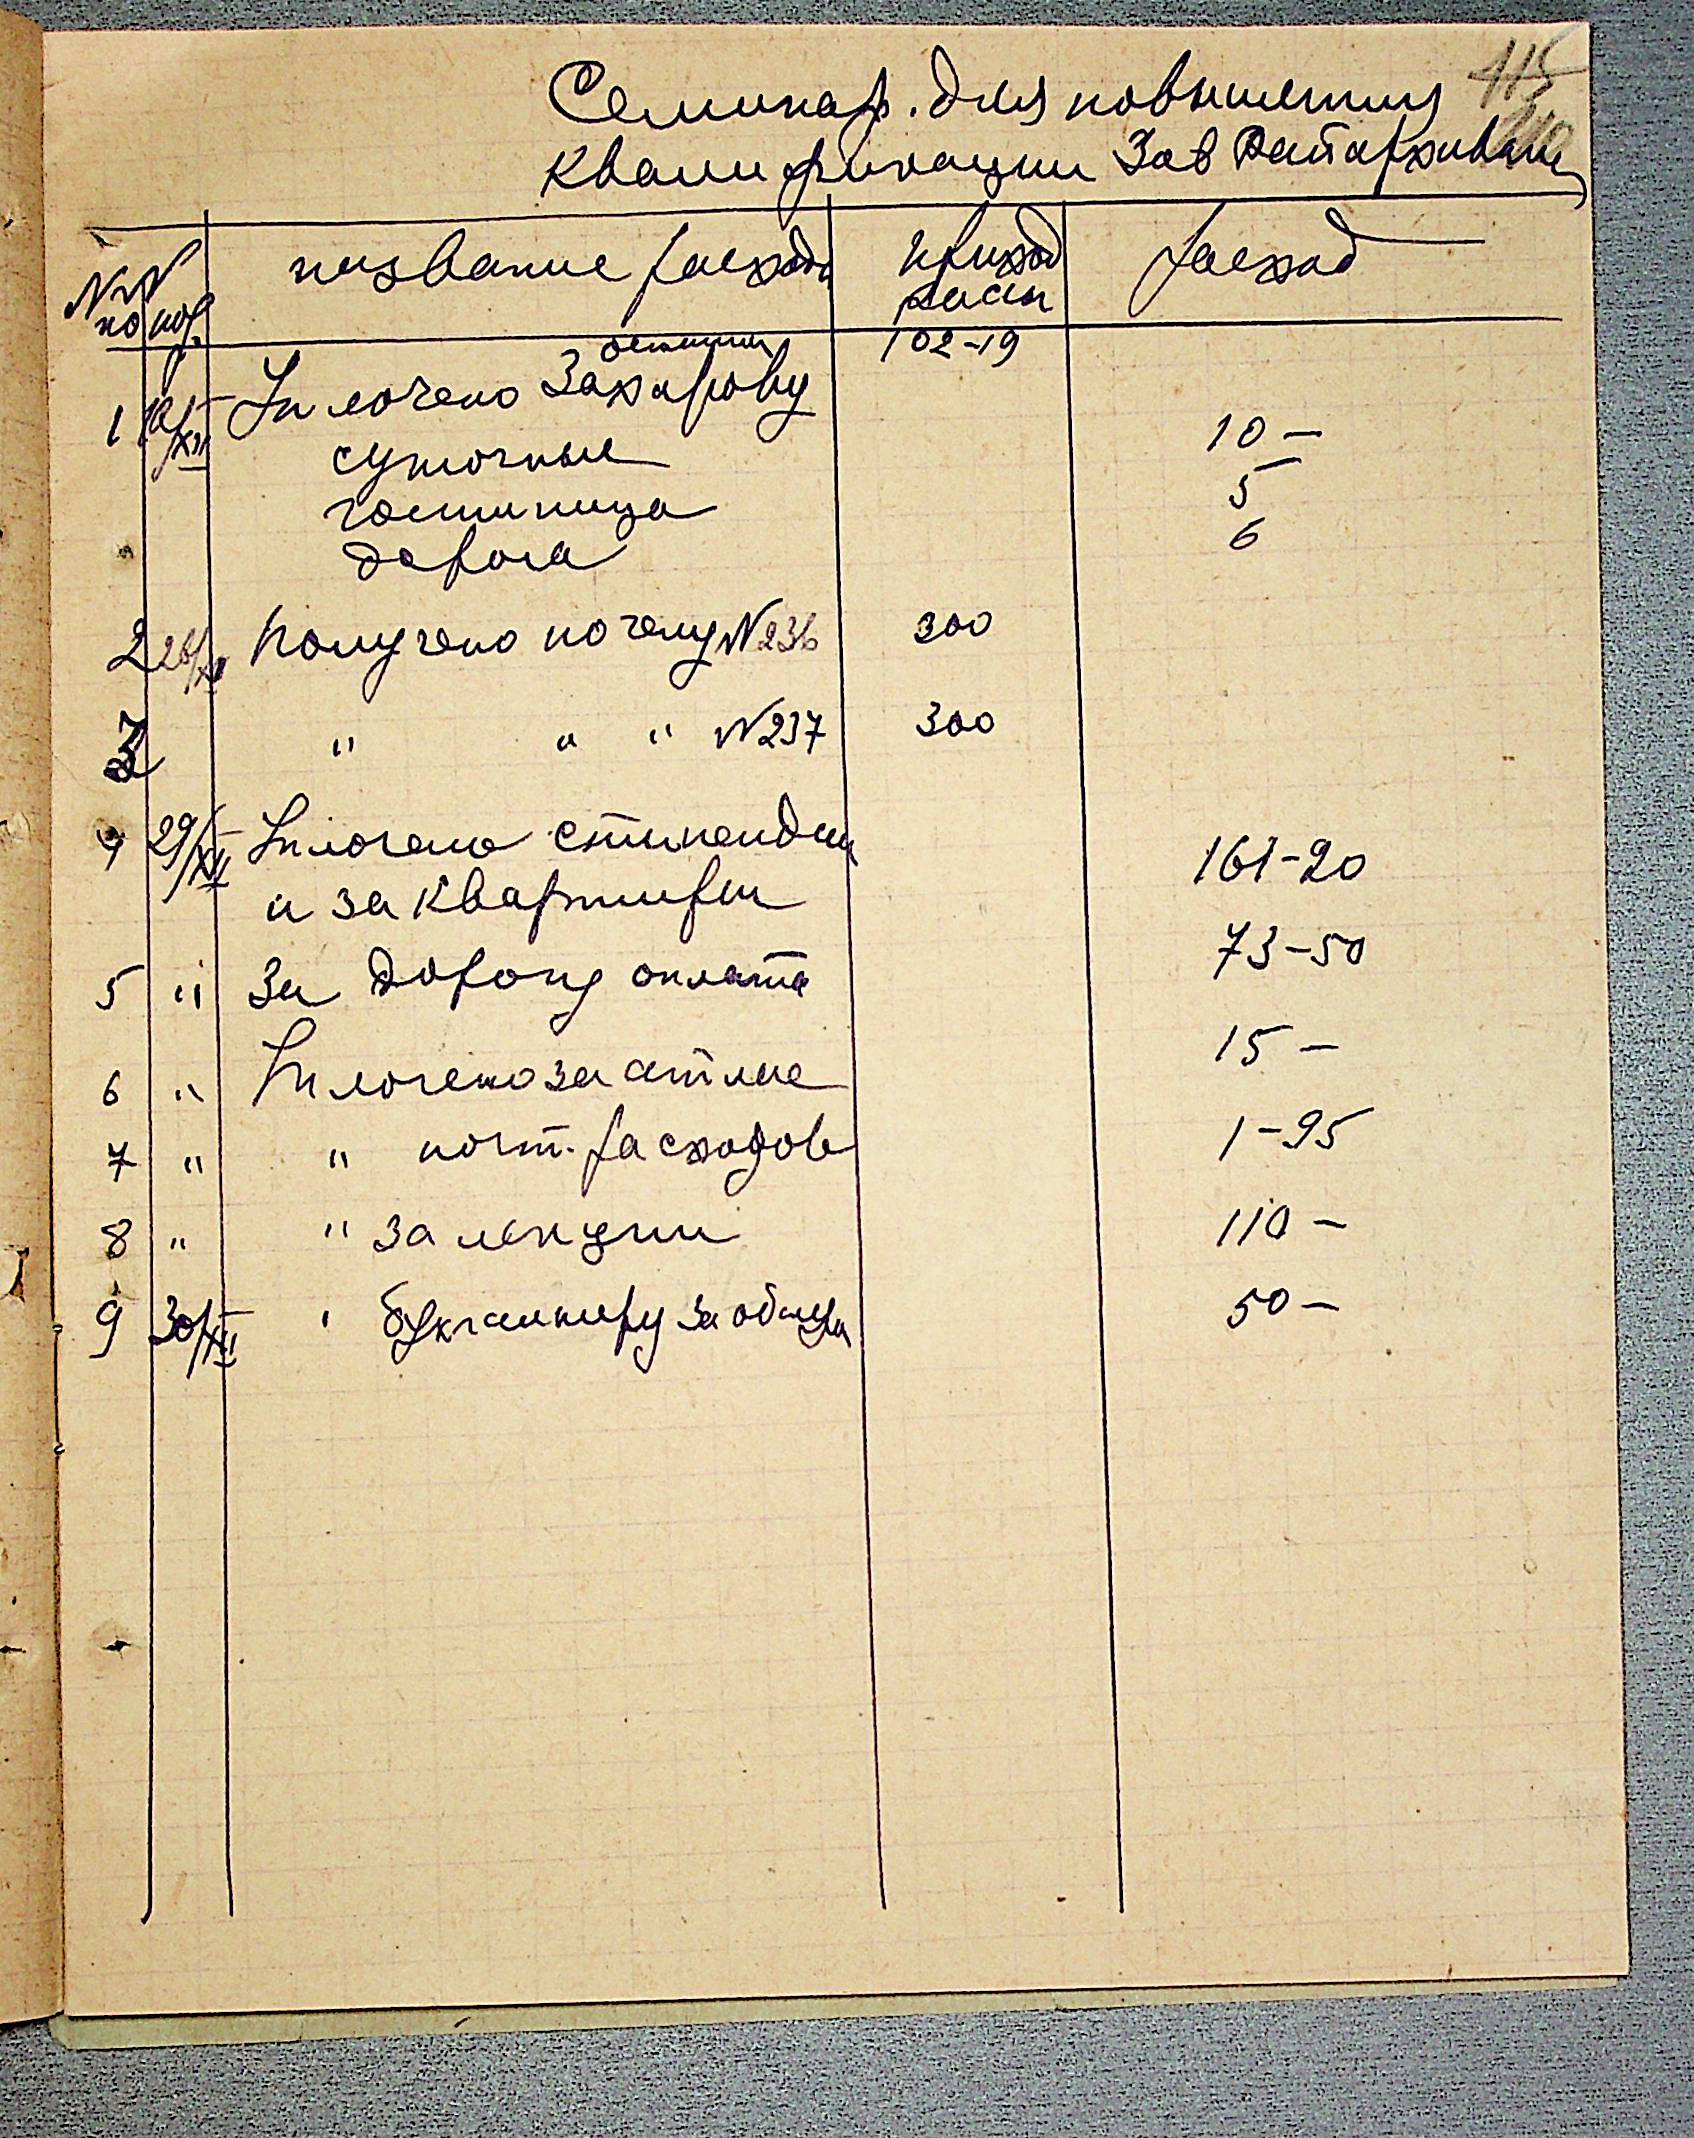 115
Семинар. для повышения
квалификации Зав Райархивами
NN по пор. название расхода приход кассы расход
остаток 102-19
1 Уплочено Захарову
суточные 10 —
гостиница 5
дорога 6
2 Получено по чеку N 236 300
3 " " " N 237 300
4 29/XII Уплочено стипендии 161-20
и за квартиры
5 " За дорогу оплата 73-50
6 " Уплочено за 15 —
7 " " почт. расходов 1-95
8 " " за лекции 110 —
9 30/XII " бухгалтеру за 50 —